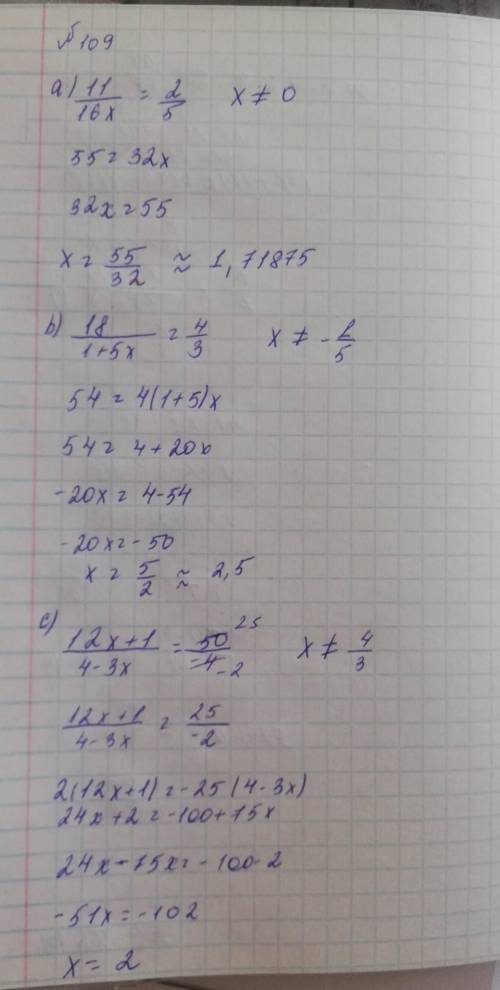 №109
a) 11/16x = 2/5 x ≠ 0
55 = 32x
32x = 55
x = 55/32 ≈ 1,71875
b) 18/1+5x = 4/3 x ≠ -1/5
54 = 4(1+5)x
54 = 4+20x
-20x = 4-54
-20x = -50
x = 5/2 ≈ 2,5
c) 12x+1/4-3x = 50/-4 25/-2 x ≠ 4/3
12x+1/4-3x = 25/-2
2(12x+1) = -25(4-3x)
24x+2 = -100+75x
24x-75x = -100-2
-51x = -102
x = 2